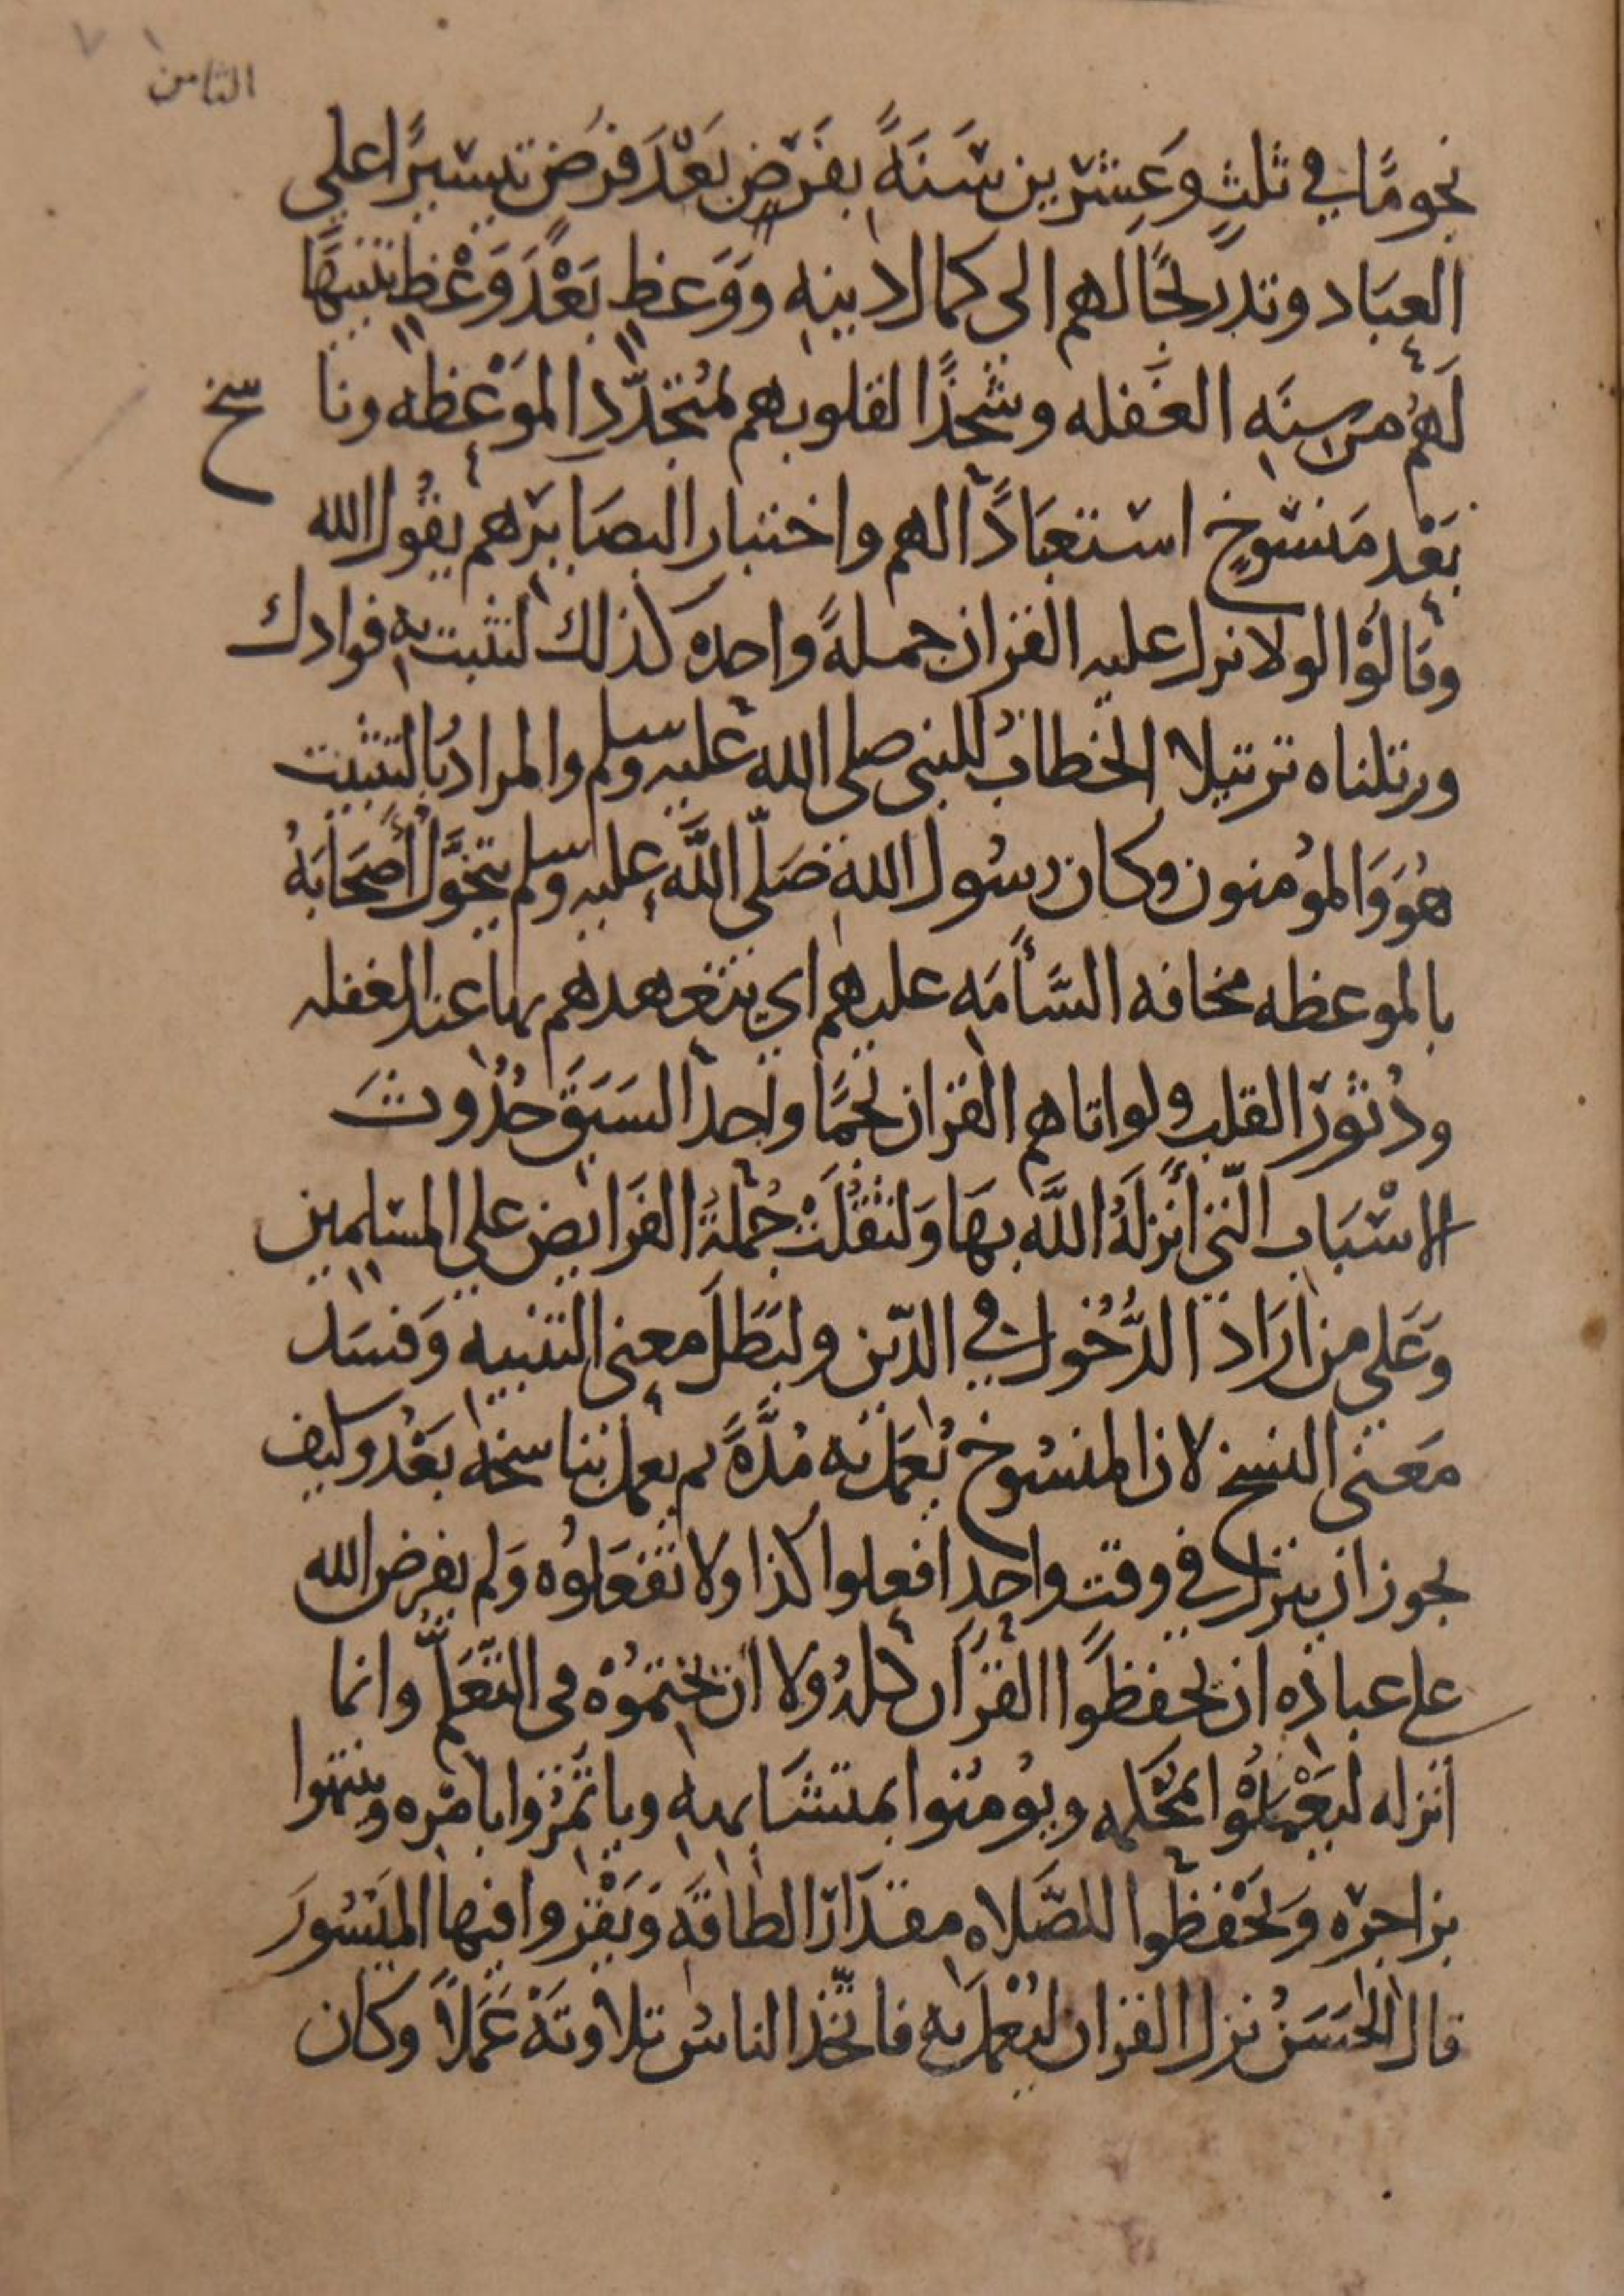 الثامن
نجومًا في ثلثٍ وعشرين سَنَةً بفَرْضٍ بَعْدَ فَرْضٍ تيسيرًا على
العِبَاد وتدريجًا لهم الى كمال دينِهِ ووَعظٍ بَعْدَ وَعْظٍ تنبيهًا
لَهُم من سِنَةِ الغَفله وشحْذًا لقلوبهم لمُتجدّدِ المَوْعِظه وناسخ
بَعْد مَنسُوخٍ استعْبَادًا لهم واختبارا لبصَايرهم يقُول الله
وقالُوْا لولا نزل عليه القران جملةً واحده كذلك لنثبت به فوادك
ورتلناه ترتيلا الخطابُ للنبى صلى الله عليه وسلم والمرادُ بالتثبيت
هُوَ وَالمؤمنون وكان رسُول اللهِ صَلَّى اللَّه عليه وسلم يتخوَّلُ أَصحَابَهُ
بالموعظه مخافه السَّأمَةِ عليهم اي يتعهدهم بها عند الغفله
ودُثورِ القلبِ ولو اتاهم القران نجمًا واحدًا لسَبَقَ حُدُوثَ
الاسْبَابِ الّتي أنزلَهُ اللَّه بهَا وَلثقُلَتْ جُمْلَةُ الفَرَايضِ على المسلمين
وَعَلى من ارَادَ الدُّخُولَ في الدّين ولبَطَلَ معنى التنبيهِ وَفسَد
مَعْنى النسخ لان المنسُوخ يُعمَلُ به مُدَّةً ثم يعمل بناسخِه بَعْدُ وكيف
يجوز ان ينزل في وقتٍ واحدٍ افعلوا كذا ولا تفعَلوُه وَلم يفرض الله
على عبادِه ان يحفظَوا القرآن كلهُ ولا ان يختمُوْه فى التّعَلُّم وانما
انزله ليَعْمَلُوْا بمُحْكمِه ويُومنُوا بمتشَابهِهِ وياتمِرُوا بامْرِه وينتهوا
بزاجِرِه وَيَحْفظُوا للصَّلاه مقدَارَ الطاقَةِ وَيَقْروا فيها المَيْسُورَ
قال الحَسَنُ نزل القران ليُعْمَلَ بِهِ فاتّخذ الناسُ تلاوتَهُ عَمَلاً وكان